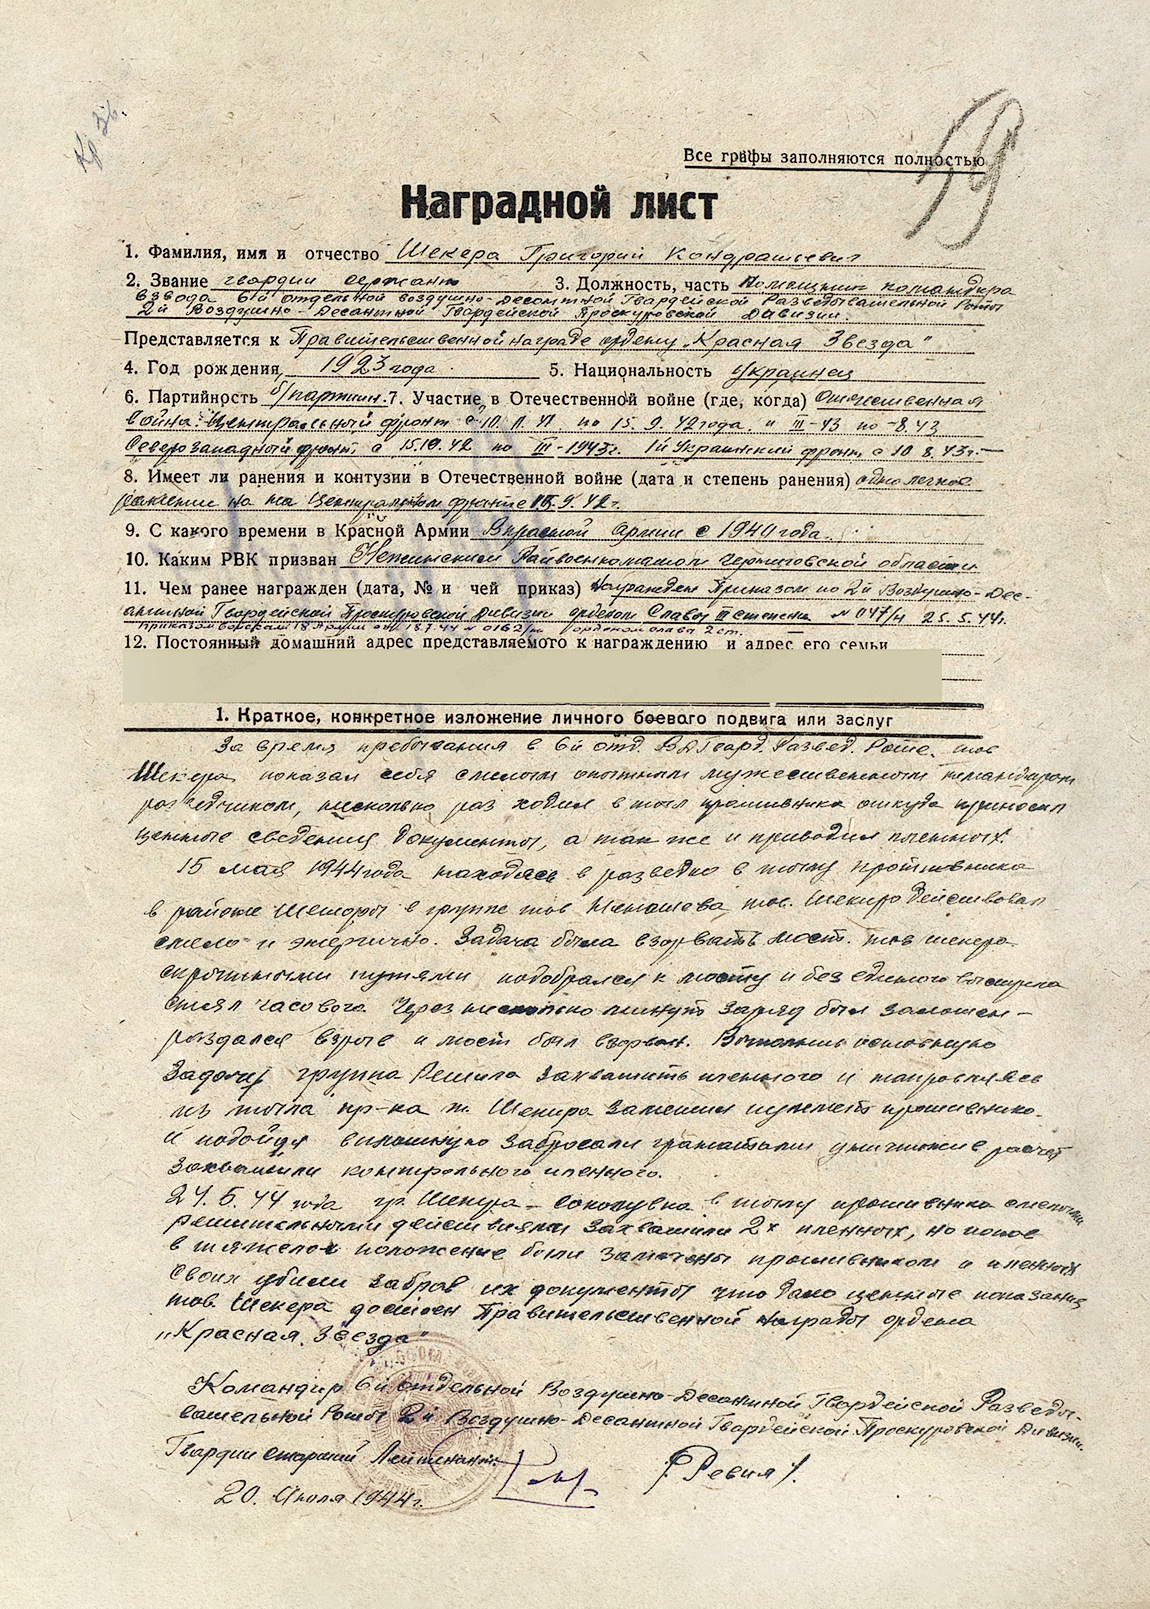 Кр Зв.
59
Все графы заполняются полностью
Наградной лист
1. Фамилия, имя и отчество Шекера Григорий Кондратьевич
2. Звание гвардии сержант 3. Должность, часть Помощник командира
взвода 6й отдельной воздушно-десантной Гвардейской Разведывательной Роты
2й Воздушно-Десантной Гвардейской Проскуровской Дивизии.
Представляется к Правительственной награде ордену „Красная Звезда"
4. Год рождения 1923 года. 5. Национальность украинец
6. Партийность б/партийн. 7. Участие в Отечественной войне (где, когда) Отечественная
война: Центральный фронт с по 15.9.42 года. и III-43 по -8.43
Северозападный фронт с 15.10.42 по III-1943г. 1й Украинский фронт с 10.8.43г.—
8. Имеет ли ранения и контузии в Отечественной войне (дата и степень ранения) одно легкое
ранение на Центральном фронте 15.9.42г.
9. С какого времени в Красной Армии В красной армии с 1940 года.
10. Каким РВК призван Нежинским Райвоенкоматом Черниговской области
11. Чем ранее награжден (дата, № и чей приказ) Награжден Приказом по 2й Воздушно-Дес-
антной Гвардейской Проскуровской Дивизии орденом Славы III степени № 047/н 25.5.44г.
приказом войскам 18 Армии от 18.7.44 № 0162/н орденом слава 2 ст.
12. Постоянный домашний адрес представляемого к награждению и адрес его семьи
1. Краткое, конкретное изложение личного боевого подвига или заслуг
За время пребывания в 6й отд. ВД Гвард. Развед. Роте. тов
Шекера показал себя смелым опытным мужественным командиром
разведчиком, несколько раз ходил в тыл противника откуда приносил
ценные сведения документы, а так же и приводил пленных.
15 мая 1944 года находясь в разведке в тылу противника
в районе Шешоры в группе тов тов. Шекира действовал
смело и энергично. Задача была взорвать мост. тов шекера
скрытными путями подобрался к мосту и без единого выстрела
снял часового. Через несколько минут заряд был заложен—
раздался взрыв и мост был взорван. Выполнив основную
задачу группа Решила захватить пленного и направляясь
из тыла пр-ка т. Шекира заметил пулемет противника.
и подойдя вплотную забросали гранатами уничтожив расчет
захватили контрольного пленного.
24.6.44 года гр. Шекера— в тылу противника смелыми
решительными действиями захватили 2х пленных, но попов
в тяжелое положение были замечены противником и пленных
своих убили забрав их документы что дало ценные показания
тов. Шекера достоен Правительственной награды ордена
„Красная Звезда"
Командир 6й отдельной Воздушно-Десантной Гвардейской Разведы-
вательной Роты 2й Воздушно-Десантной Гвардейской Проскуровской Дивизии.
Гвардии старший Лейтенант:
20. Июля 1944г.